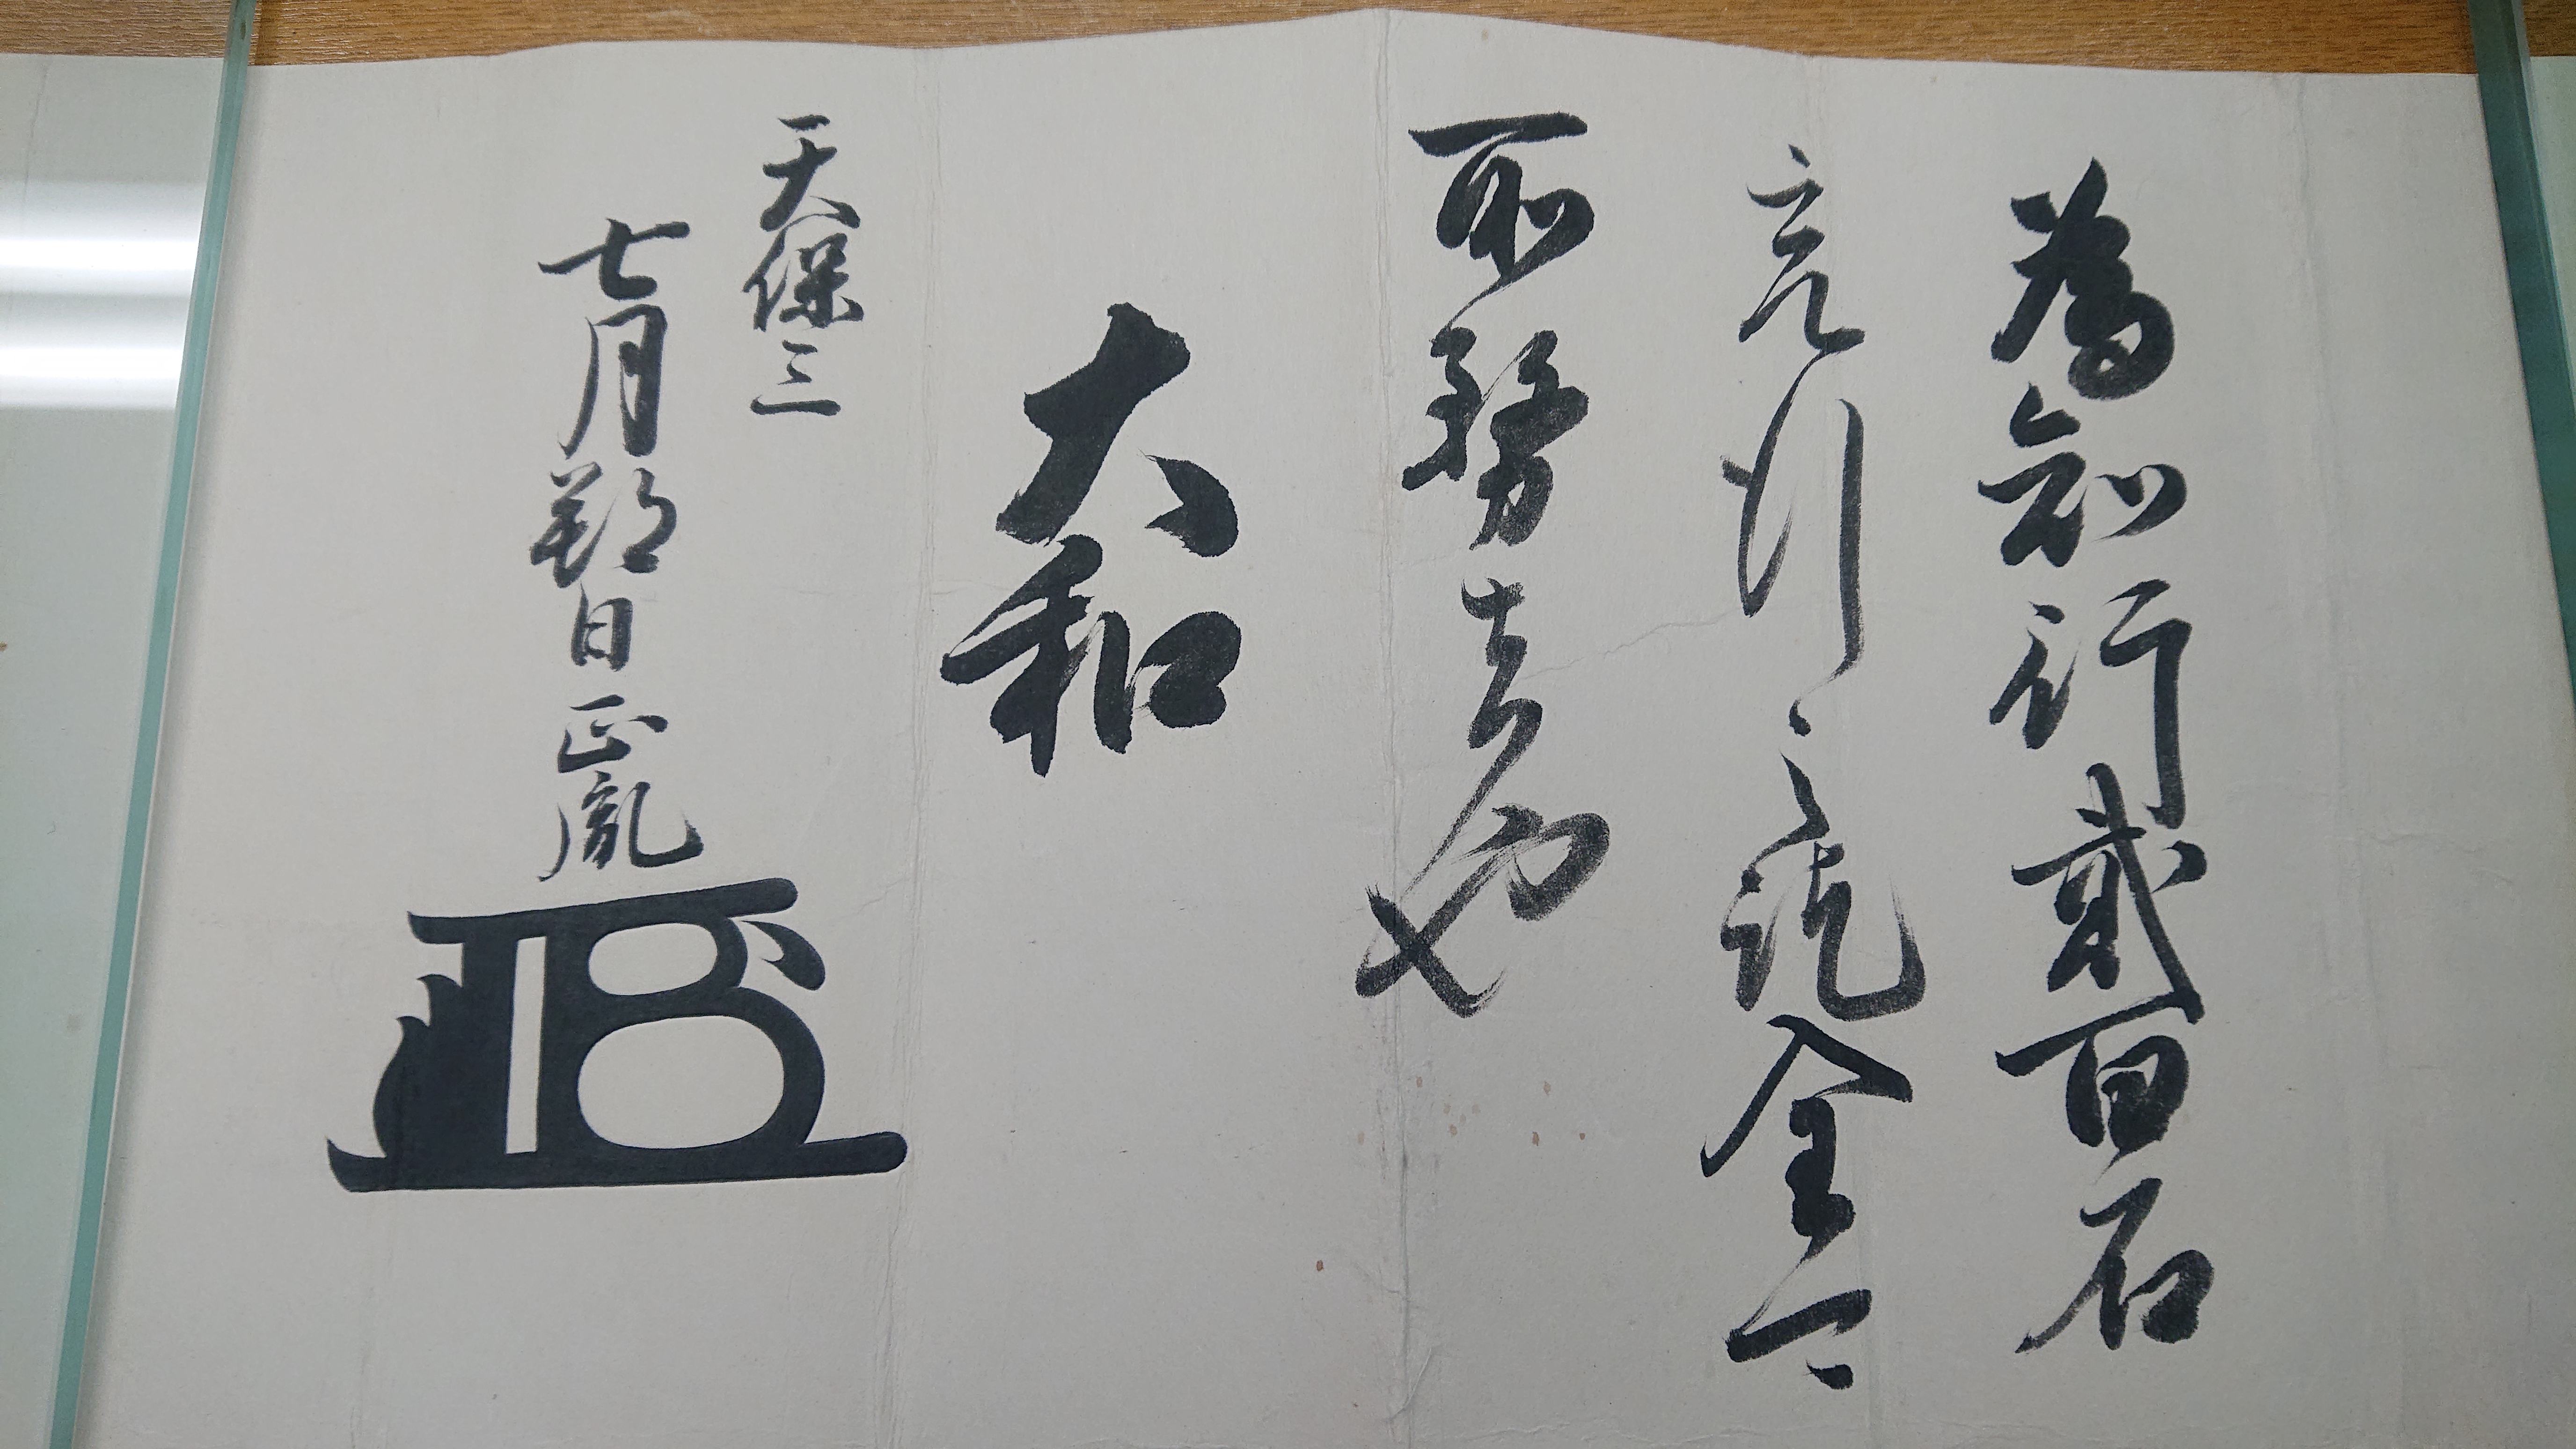 為知行貳百石
充行之訖全可
所務者也
大和
天保三
七月朔日 正胤